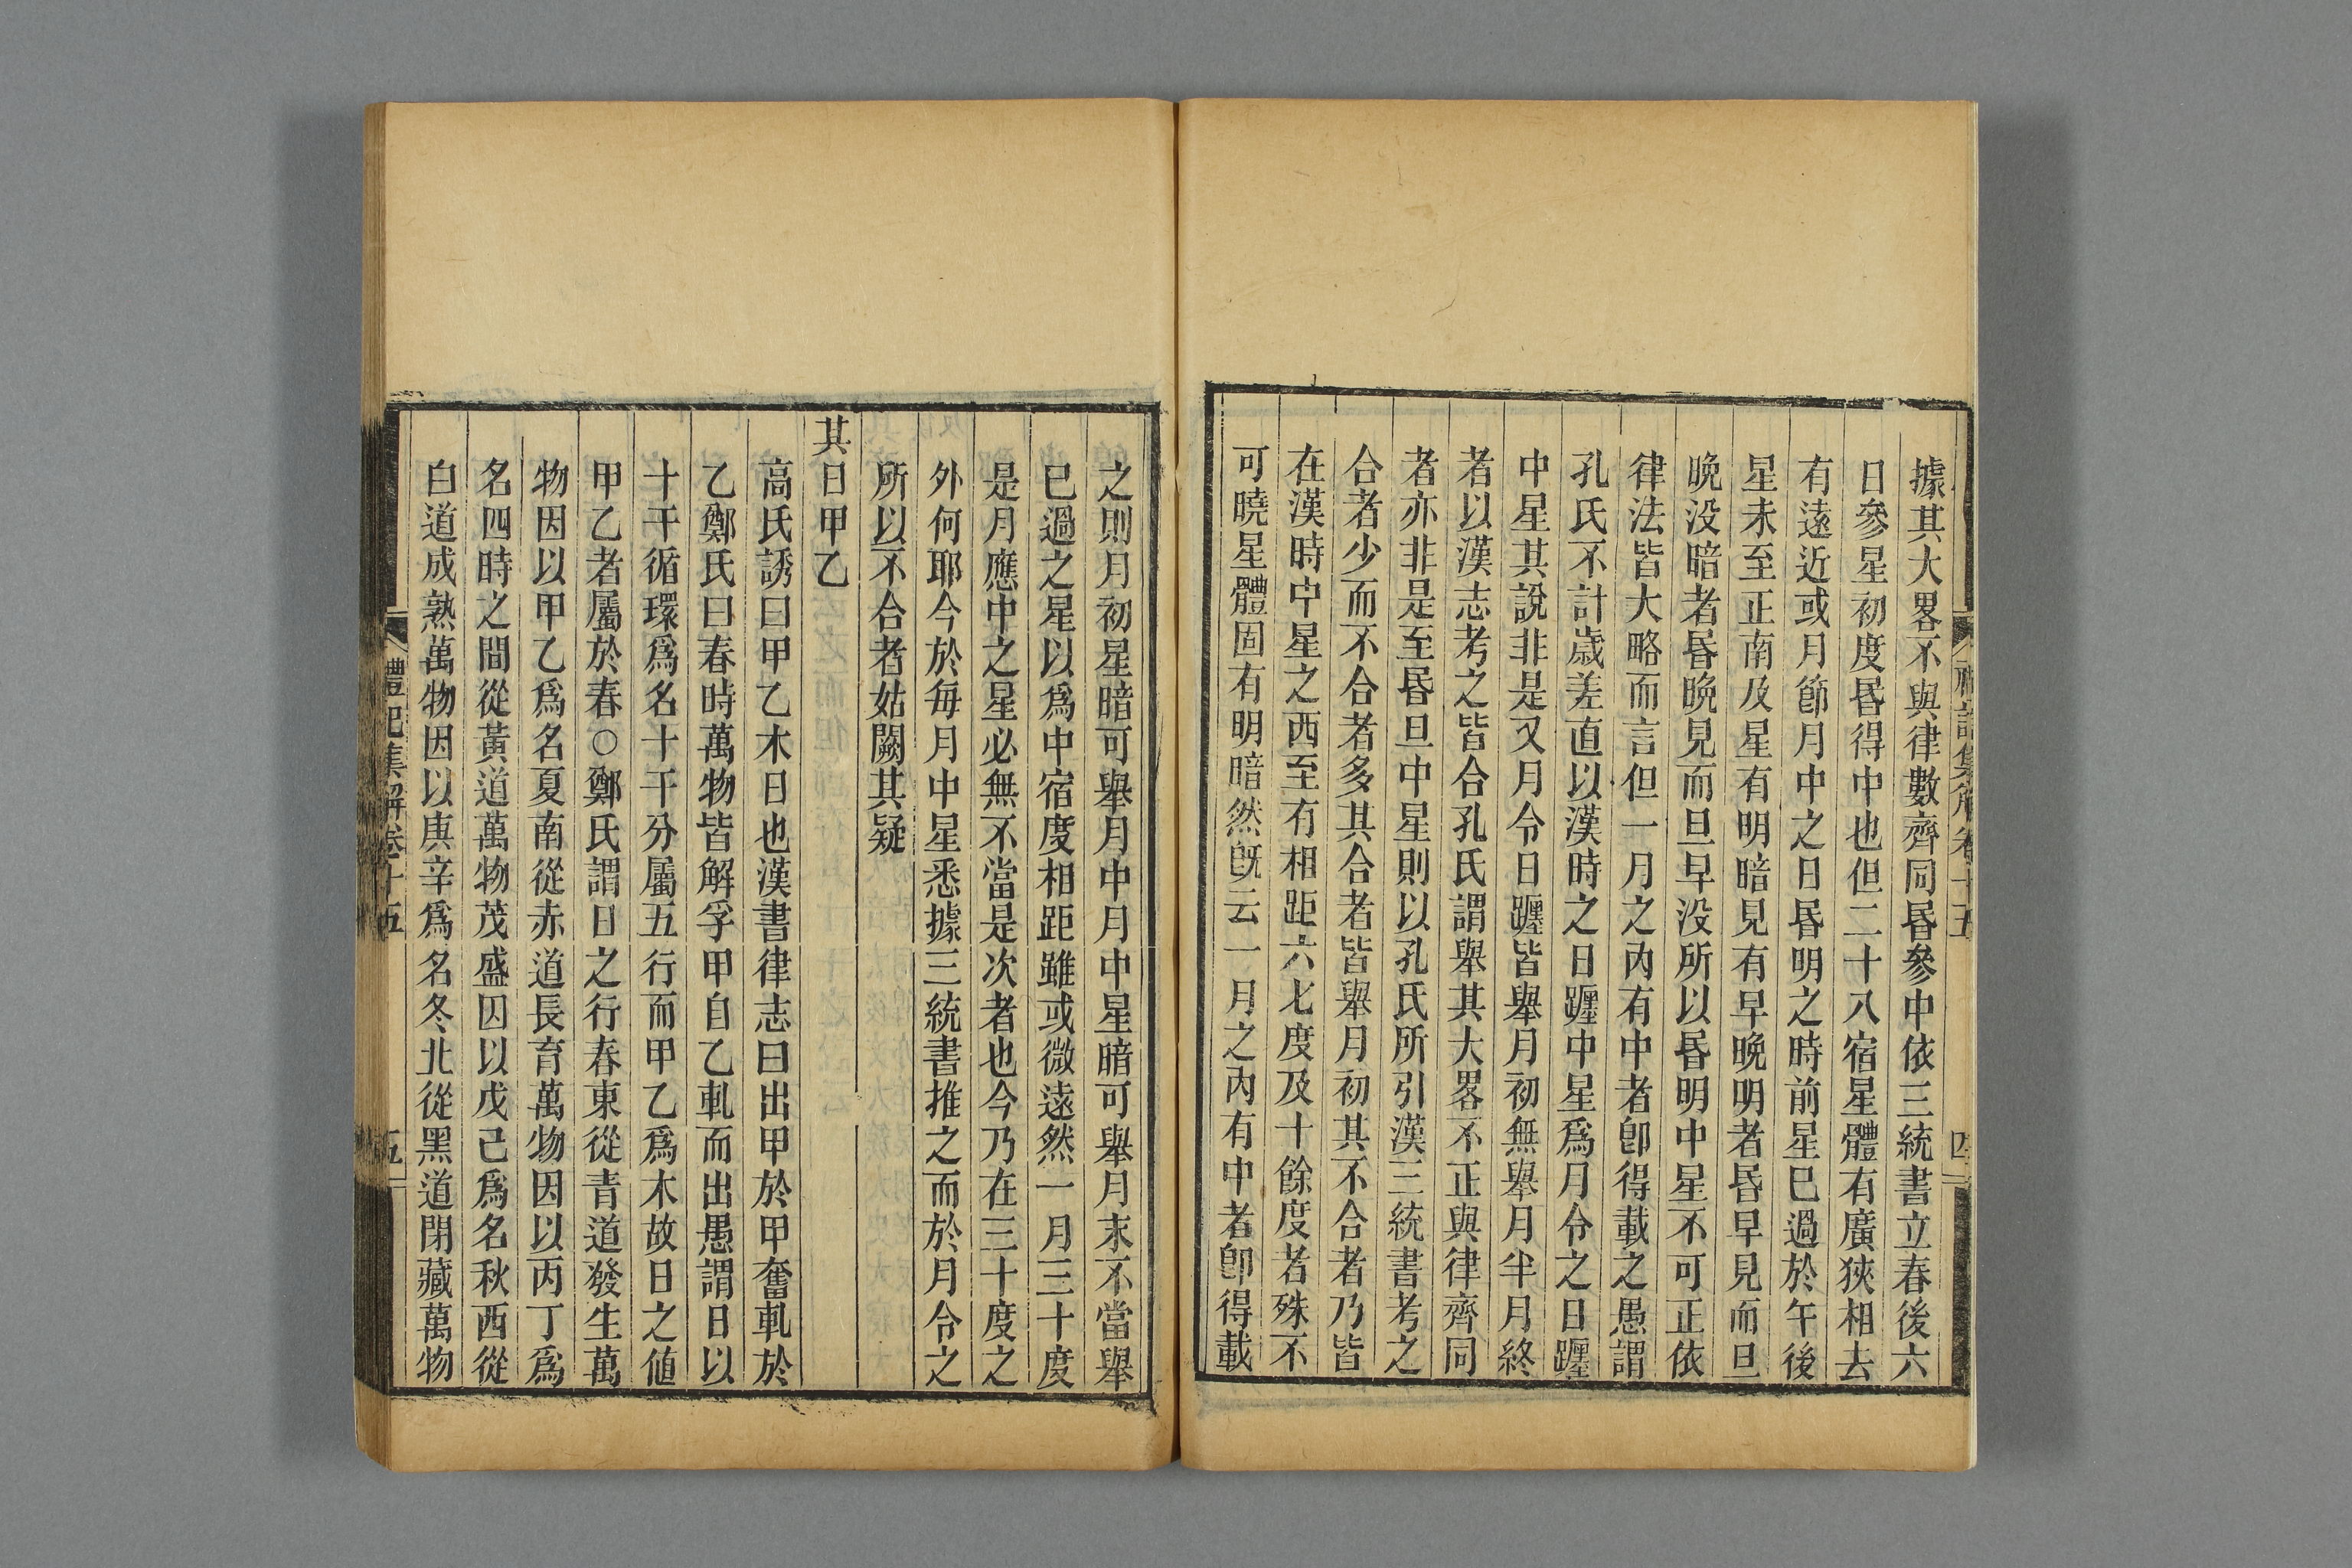 據其大畧不與律數齊同昬參中依三統書立春後六
日參星初度昬得中也但二十八宿星體有廣狹相去
有遠近或月節月中之日昬明之時前星已過於午後
星未至正南及星有明暗見有早晚明者昬早見而旦
晚没暗者昬晚見而旦早没所以昬明中星不可正依
律法皆大略而言但一月之內有中者卽得載之愚謂
孔氏不計歲差直以漢時之日躔中星爲月令之日躔
中星其說非是又月令日躔皆舉月初無舉月半月終
者以漢志考之皆合孔氏謂舉其大畧不正與律齊同
者亦非是至昬旦中星則以孔氏所引漢三統書考之
合者少而不合者多其合者皆舉月初其不合者乃皆
在漢時中星之西至有相距六七度及十餘度者殊不
可曉星體固有明暗然旣云一月之內有中者卽得載
禮記集解卷十五
四
之則月初星暗可舉月中月中星暗可舉月末不當舉
已過之星以爲中宿度相距雖或微遠然一月三十度
是月應中之星必無不當是次者也今乃在三十度之
外何耶今於每月中星悉據三統書推之而於月令之
所以不合者姑闕其疑
其日甲乙
高氏誘曰甲乙木日也漢書律志曰出甲於甲奮軋於
乙鄭氏曰春時萬物皆解孚甲自乙軋而出愚謂日以
十干循環爲名十干分屬五行而甲乙爲木故日之値
甲乙者屬於春○鄭氏謂日之行春東從青道發生萬
物因以甲乙爲名夏南從赤道長育萬物因以丙丁爲
名四時之間從黃道萬物茂盛因以戊己爲名秋西從
白道成熟萬物因以庚辛爲名冬北從黑道閉藏萬物
禮記集解卷十五
五